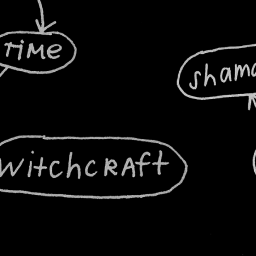 TiME
shama
WitchcRAft